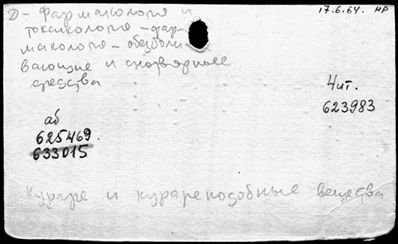 Д - Фармакология и
17.6.64. НР
токсикология - фар-
макология - обезболи-
вающие и снотворные
средства
Чит.
623983
аб
625469
633015
Кураре и курареподобные вещества